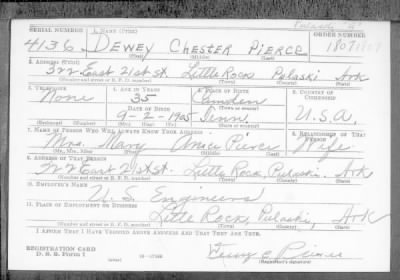 Pulaski "B"
SERIAL NUMBER 1. NAME (Print) ORDER NUMBER
4136 DEWEY CHESTER PIERCE
(First) (Middle) (Last)
2. ADDRESS (Print)
322 East 21st St. Little Rock Pulaski Ark
(Number and street or R. F. D. number) (Town) (County) (State)
3. TELEPHONE 4. AGE IN YEARS 5. PLACE OF BIRTH 6. COUNTRY OF CITIZENSHIP
None 35 Camden
DATE OF BIRTH
9-2-1905 Tenn. U.S.A.
(Exchange) (Number) (Mo.) (Day) (Yr.) (State or country)
7. NAME OF PERSON WHO WILL ALWAYS KNOW YOUR ADDRESS 8. RELATIONSHIP OF THAT PERSON
Mrs. Mary Pierce Wife
(Mr., Mrs., Miss) (First) (Middle) (Last)
9. ADDRESS OF THAT PERSON
322 East 21st St. Little Rock, Pulaski. Ark
(Number and street or R. F. D. number) (Town) (County) (State)
10. EMPLOYER'S NAME
U. S. Engineers
11. PLACE OF EMPLOYMENT OR BUSINESS
Little Rock, Pulaski, Ark
(Number and street or R. F. D. number) (Town) (County) (State)
I AFFIRM THAT I HAVE VERIFIED ABOVE ANSWERS AND THAT THEY ARE TRUE.
REGISTRATION CARD
D. S. S. Form 1 (over) 16-17105 (Registrant's signature)
Dewey C Pierce